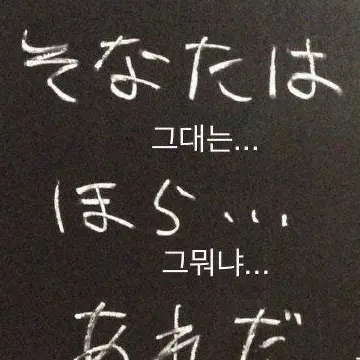 そなたは
그대는...
ほら...
그뭐냐...
あれだ